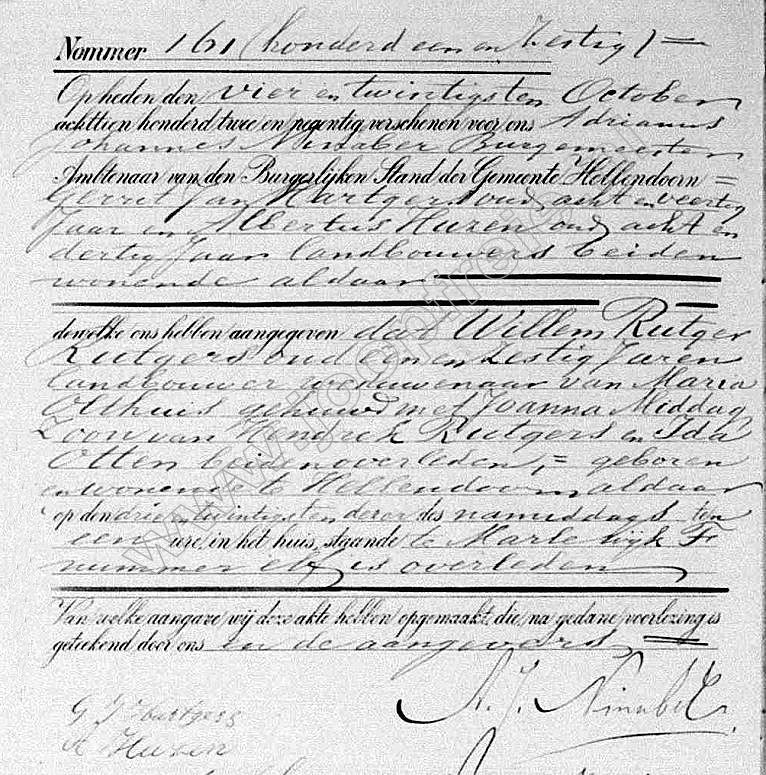 Nommer 161 (honderd een en Zestig) =
Op heden den vier en twintigsten October
achttien honderd twee en negentig verschenen voor ons Adrianus
Johannes Ninaber Burgemeester
Ambtenaar van den Burgerlijken Stand der Gemeente Hellendoorn =
Gerrit Jan Hartgers oud acht en veertig
Jaar en Albertus Huzen oud acht en
dertig Jaar landbouwers beiden
wonende aldaar
dewelke ons hebben aangegeven dat Willem Rutger
Rutgers oud een en Zestig Jaren
landbouwer weduwenaar van Maria
Olthuis gehuwd met Joanna Middag
Zoon van Hendrik Rutgers en Ida
Otten beiden overleden, = geboren
en wonende te Hellendoorn aldaar
op den drie en twintigsten dezer des namiddags ten
een ure, in het huis, staande te Marle wijk F
nummer elf is overleden
Van welke aangave wij deze akte hebben opgemaakt, die, na gedane voorlezing is
geteekend door ons en de aangevers
A. J. Ninaber
G J Hartgers
A Huzen